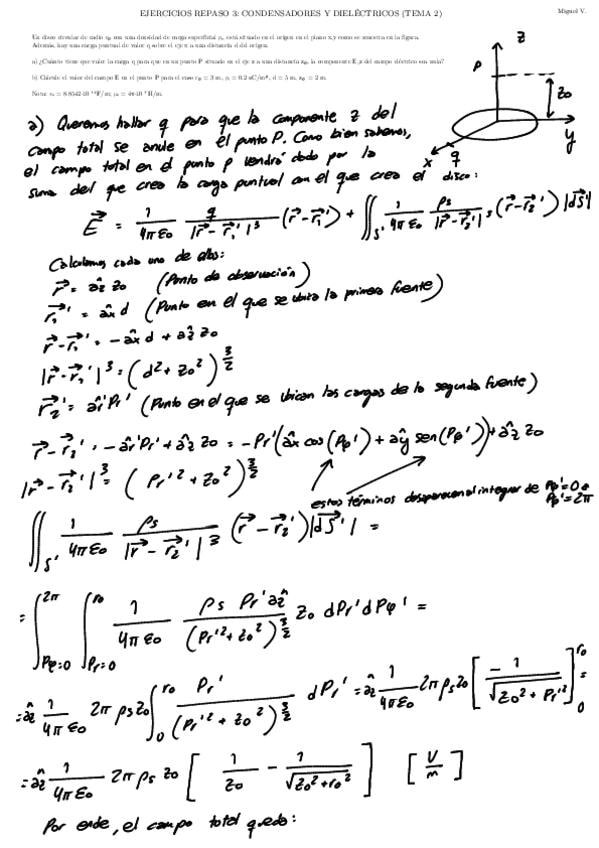 EJERCICIOS REPASO 3: CONDENSADORES Y DIELÉCTRICOS (TEMA 2)
Miguel V.
Un disco circular de radio r₀ con una densidad de carga superficial ρₛ está situado en el origen en el plano x,y como se muestra en la figura.
Además, hay una carga puntual de valor q sobre el eje x a una distancia d del origen.
a) ¿Cuánto tiene que valer la carga q para que en un punto P situado en el eje z a una distancia z₀, la componente E_z del campo eléctrico sea nula?
b) Calcule el valor del campo E en el punto P para el caso r₀ = 3 m, ρₛ = 0.2 nC/m², d = 5 m, z₀ = 2 m.
z
P
z₀
y
x
q
a) Queremos hallar q para que la componente z del
campo total se anule en el punto P. Como bien sabemos,
el campo total en el punto P vendrá dado por la
suma del que crea la carga puntual con el que crea el disco:
E⃗ = 1/(4πε₀) q/|r⃗-r₁⃗'|³ (r⃗-r₁⃗') + ∬_S' 1/(4πε₀) ρs/|r⃗-r₂⃗'|³ (r⃗-r₂⃗') |dS⃗'|
Calculamos cada uno de ellos:
r⃗ = âz z₀ (Punto de observación)
r₁⃗' = âx d (Punto en el que se ubica la primera fuente)
r⃗-r₁⃗' = -âx d + âz z₀
|r⃗-r₁⃗'|³ = (d²+z₀²)^(3/2)
r₂⃗' = âr' Pr' (Punto en el que se ubican las cargas de la segunda fuente)
r⃗-r₂⃗' = -âr' Pr' + âz z₀ = -Pr' (âx cos(Pφ') + ây sen(Pφ')) + âz z₀
|r⃗-r₂⃗'|³ = (Pr'² + z₀²)^(3/2)
estos términos desaparecen al integrar de Pφ'=0 a
Pφ'=2π
∬_S' 1/(4πε₀) ρs/|r⃗-r₂⃗'|³ (r⃗-r₂⃗') |dS⃗'| =
= ∫_{Pφ=0}^{2π} ∫_{Pr=0}^{r₀} 1/(4πε₀) ρs Pr' âz/(Pr'²+z₀²)^(3/2) z₀ dPr' dPφ' =
= âz 1/(4πε₀) 2π ρs z₀ ∫_0^{r₀} Pr'/(Pr'²+z₀²)^(3/2) dPr' = âz 1/(4πε₀) 2π ρs z₀ [-1/√(z₀²+Pr'²)]_0^{r₀} =
= âz 1/(4πε₀) 2π ρs z₀ [1/z₀ - 1/√(z₀²+r₀²)] [V/m]
Por ende, el campo total queda: